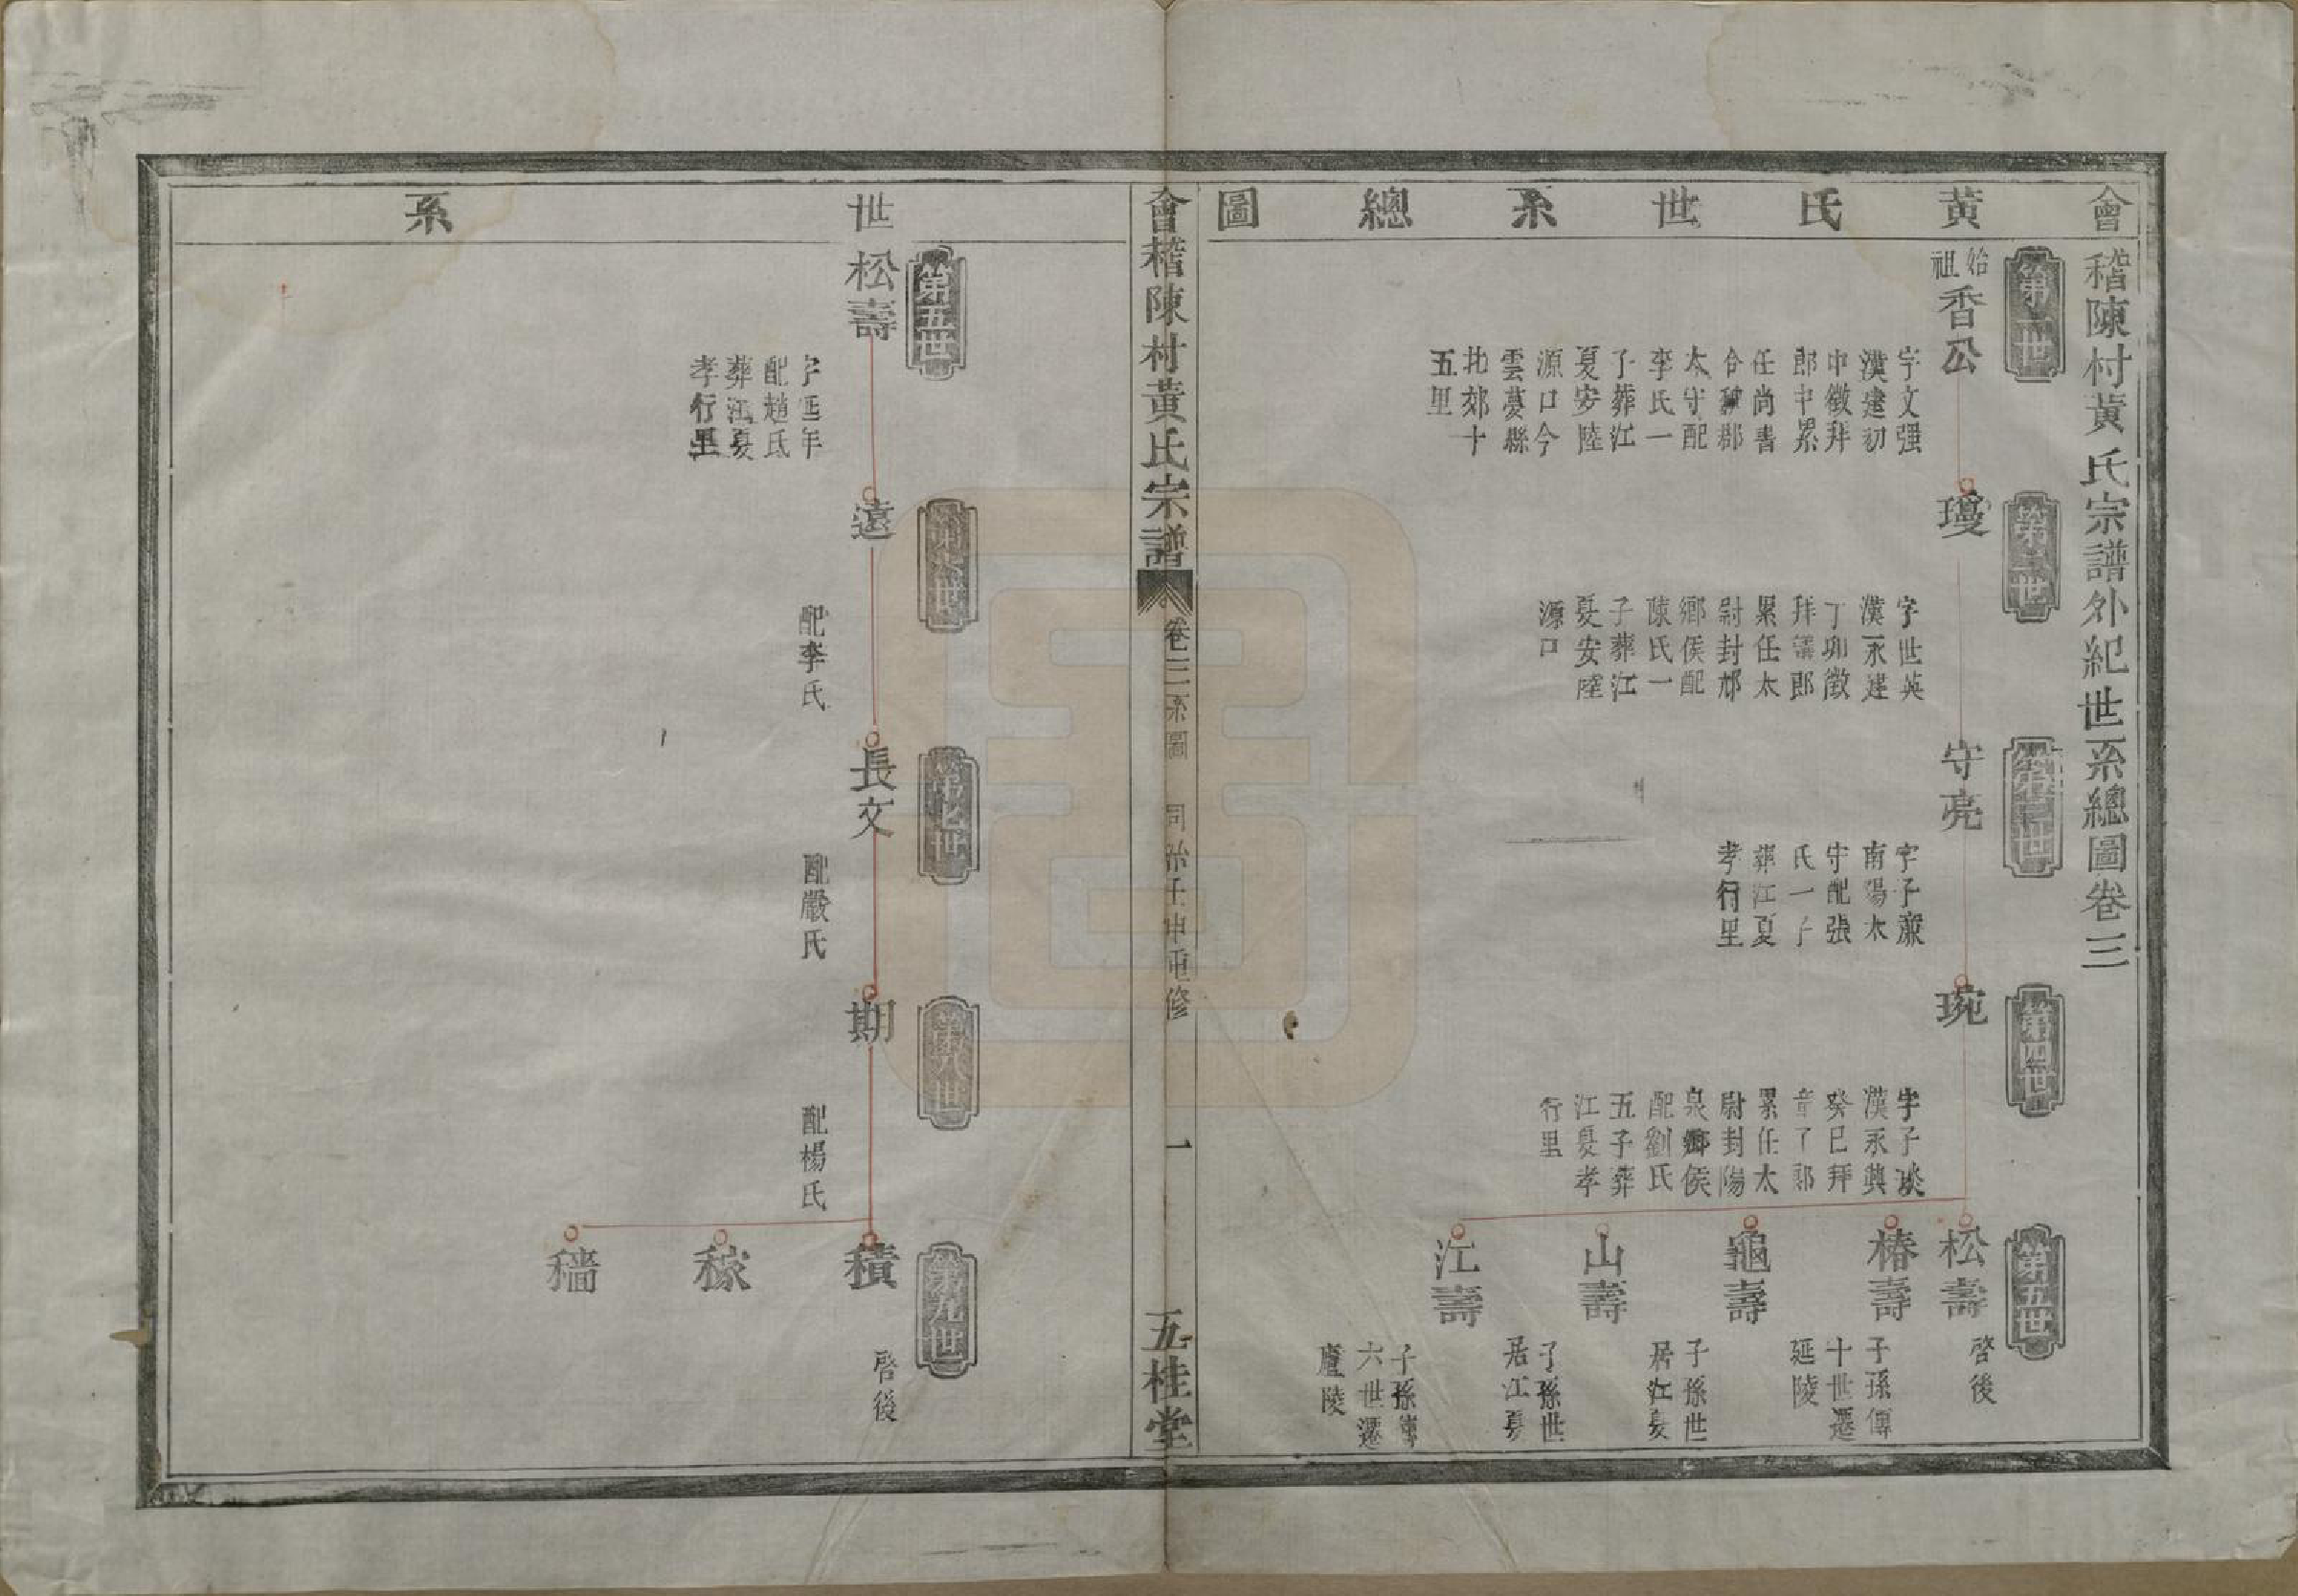 會稽陳村黃氏宗譜外紀世系總圖卷三
黃氏世系總圖
第一世
始祖
香公
字文强
漢建初
中徵拜
郎中累
任尚書
令魏郡
太守配
李氏一
子葬江
夏安陸
源口今
雲夢縣
北郊十
五里
第二世
瓊
字世英
漢永建
丁卯徵
拜議郎
累任太
尉封邟
鄉侯配
陳氏一
子葬江
夏安陸
源口
第三世
守亮
字子廉
南陽太
守配張
氏一子
葬江夏
孝行里
第四世
琬
字子琰
漢永興
癸巳拜
章丁郎
累任太
尉封陽
泉鄉侯
配劉氏
五子葬
江夏孝
行里
第五世
松壽
啓後
椿壽
子孫傳
十世遷
延陵
龜壽
子孫世
居江夏
山壽
子孫世
居江夏
江壽
子孫傳
六世遷
廬陵
會稽陳村黃氏宗譜
卷三
系圖
同治壬申重修
一
五桂堂
世系
第五世
松壽
字延年
配趙氏
葬江夏
孝行里
第六世
遠
配李氏
第七世
長文
配嚴氏
第八世
期
配楊氏
第九世
積
啓後
稼
穡